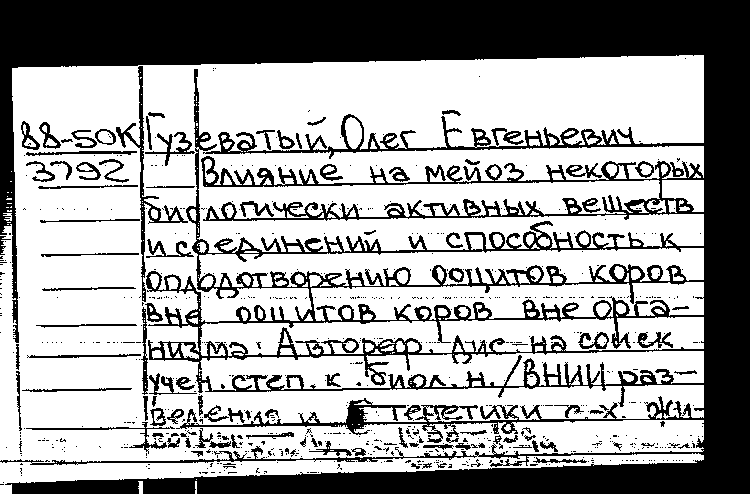 88-50К Гузеватый, Олег Евгеньевич
3792 Влияние на мейоз некоторых
биологически активных веществ
и соединений и способность к
оплодотворению ооцитов коров
вне ооцитов коров вне орга-
низма: Автореф. дис. на соиск.
учен. степ. к. биол. н. / ВНИИ раз-
ведения и генетики с-х. жи-
вотных. — Л., 1988. — 19с